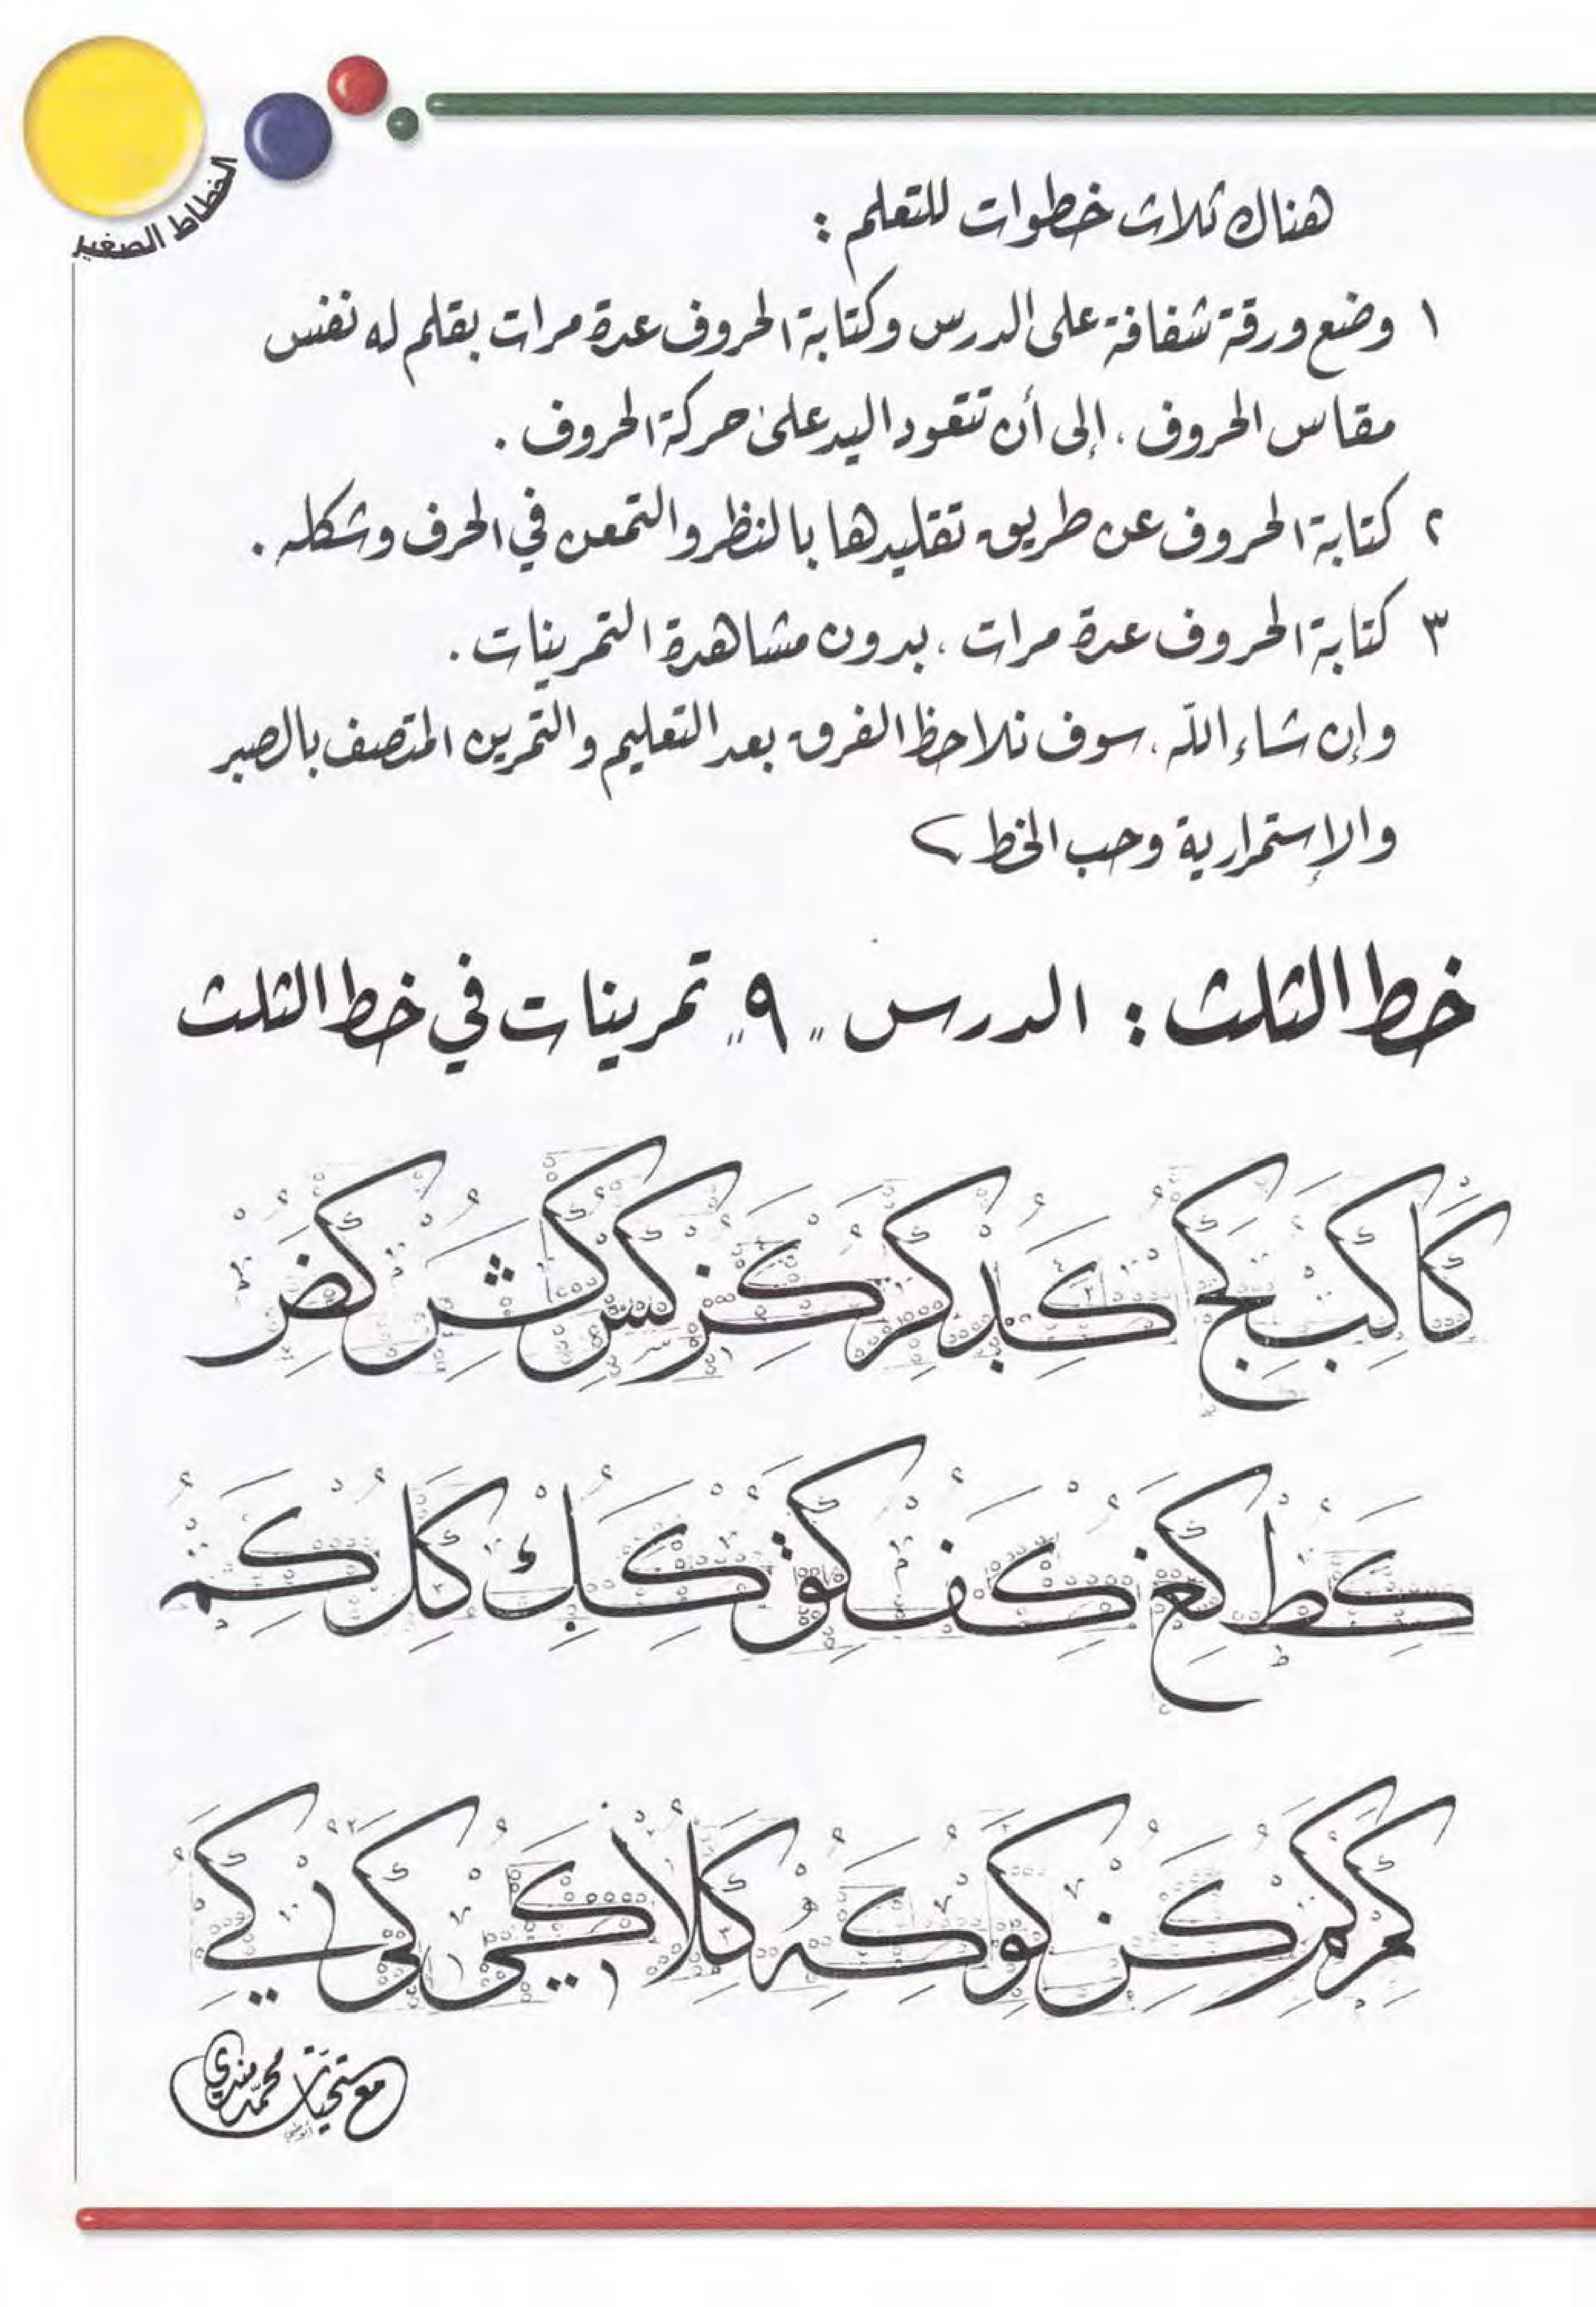 الخطاط الصغير
هناك ثلاث خطوات للتعلم :
١ وضع ورقة شفافة على الدرس وكتابة الحروف عدة مرات بقلم له نفس
مقاس الحروف ، إلى أن تتعود اليد على حركة الحروف .
٢ كتابة الحروف عن طريق تقليدها بالنظر والتمعن في الحرف وشكله .
٣ كتابة الحروف عدة مرات ، بدون مشاهدة التمرينات .
وإن شاء الله ، سوف نلاحظ الفرق بعد التعليم والتمرين المتصف بالصبر
والإستمرارية وحب الخط
خط الثلث : الدرس "٩" تمرينات في خط الثلث
كا كب كج كد كر كز كس كش كض
كط كع كف كق كك كل كم
كم كم كن كو كه كلا كي كي كي
مع تحيات محمد مندي
أبوظبي